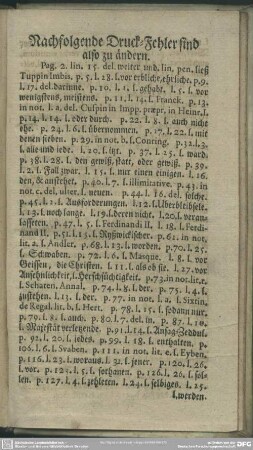 Nachfolgende Druck-Fehler sind
also zu ändern.
Pag. 2. lin. 15. del. weiter und. lin. pen. ließ
Tuppin Imhis, p. 5. l. 18. l. vor erblich, ehrliche. p. 9.
l. 17. del. darinne. p. 10. l. 1. l. gehabt. l. 5. l. vor
wenigstens, meistens. p. 11. l. 14. l. Franck. p. 13.
in not. l. a. del. Cuspin in Imp. præpr. in Henr. l.
p. 14. l. 14. l. oder durch. p. 22. l. 8. l. auch nicht
ehe. p. 24. l. 6. l. übernommen. p. 17. l. 22. l. mit
denen sieben. p. 29. in not. b. l. Conring. p. 32. l. 3.
l. alle und jede. l. 20. l. ist. p. 37. l. 25. l. ward.
p. 38. l. 28. l. den gewiß, statt, oder gewiß. p. 39.
l. 2. l. Fall zwar. l. 15. l. nur einen einigen. l. 16.
den, & anstehet. p. 40. l. 7. l. illimitative. p. 43. in
not. c. del. ulter. l. neuen. p. 44. l. 16. del. solche.
p. 45. l. 2. l. Ausforderungen. l. 12. l. Uberbleibsele.
l. 13. l. noch lange. l. 19. l. deren nicht. l. 20. l. veran-
lasseten. p. 47. l. 5. l. Ferdinandi II. l. 18. l. Ferdi-
nand II. p. 51. l. 15. l. Roßwickischer. p. 61. in not.
lit. a. l. Andler. p. 68. l. 13. l. worden. p. 70. l. 25.
l. Schwaben. p. 72. l. 6. l. Masque. l. 8. l. vor
Geissen, die Christen. l. 11. l. als ob sie. l. 17. vor
Ansehnlichkeit, l. Herrschsüchtigkeit. p. 73. in not. lit. e.
l. Scharen. Annal. p. 74. l. 8. l. der. p. 75. l. 4. l.
zustehen. l. 13. l. der. p. 77. in not. l. a. l. Sixtin.
de Regal. lit. b. l. Hert. p. 78. l. 15. l. sodann nur.
p. 79. l. 8. l. auch. p. 80. l. 7. del. in. p. 87. l. 19.
l. Majestät verletzende. p. 91. l. 14. l. Ansag-Zeddul.
p. 92. l. 20. l. jedes. p. 99. l. 18. l. enthalten. p.
106. l. 6. l. Svaben. p. 111. in not. lit. e. l. Eyben.
p. 116. l. 23. l. woraus. l. 31. l. jener. p. 120. l. 26.
l. vor. p. 121. l. 5. l. sothanen. p. 126. l. 26. l. sol-
len. p. 127. l. 4. l. zehleten. l. 24. l. selbiges. l. 25.
l. werden.